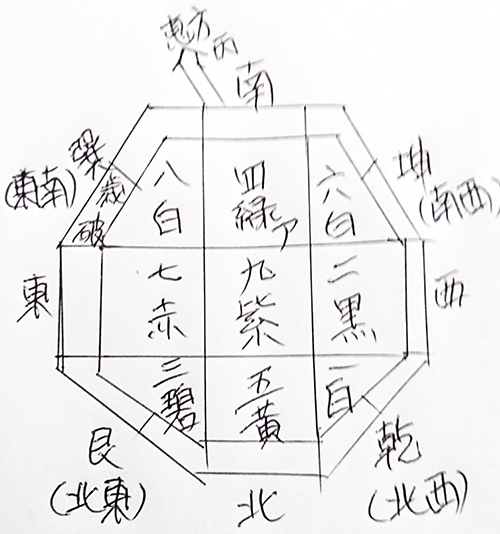 恵方
丙
南
巽
(東南)
歳破
八白
四緑
ア
六白
坤
(南西)
東
七赤
九紫
二黒
西
三碧
五黄
一白
艮
(北東)
北
乾
(北西)